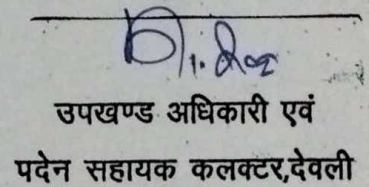 उपखण्ड अधिकारी एवं
पदेन सहायक कलक्टर,देवली